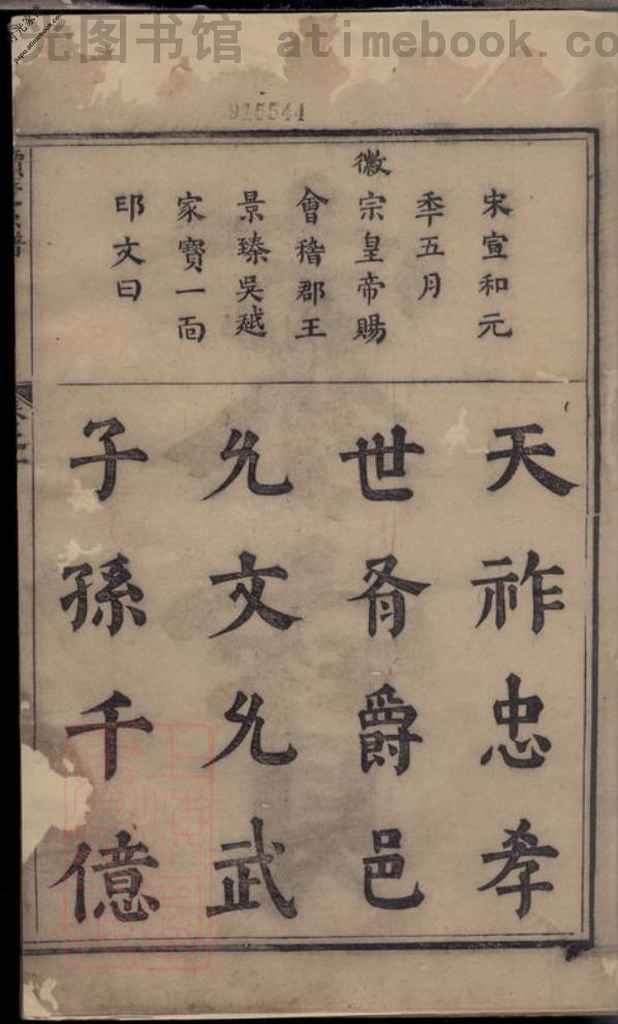 光图书馆 atimebook.co
916544
宋宣和元
秊五月
徽宗皇帝賜
會稽郡王
景臻吳越
家寶一面
印文曰
天祚忠孝
世胥爵邑
允文允武
子孫千億